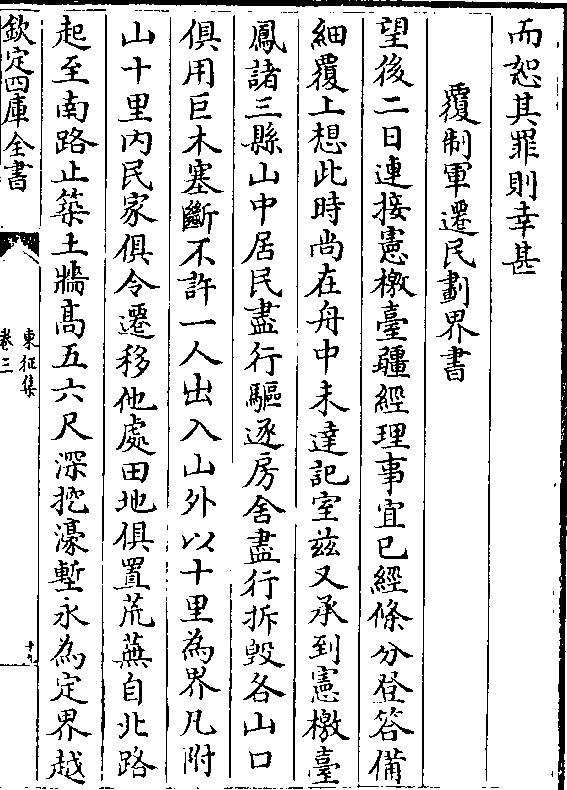 而恕其罪則幸甚
覆制軍遷民劃界書
望後二日連接憲檄臺疆經理事宜已經條分登答備
細覆上想此時尚在舟中未達記室兹又承到憲檄臺
鳳諸三縣山中居民盡行驅逐房舍盡行拆毁各山口
俱用巨木塞斷不許一人出入山外以十里為界凡附
山十里内民家俱令遷移他處田地俱置荒蕪自北路
起至南路止築土牆髙五六尺深挖濠塹永為定界越
欽定四庫全書
東征集
卷三
十九